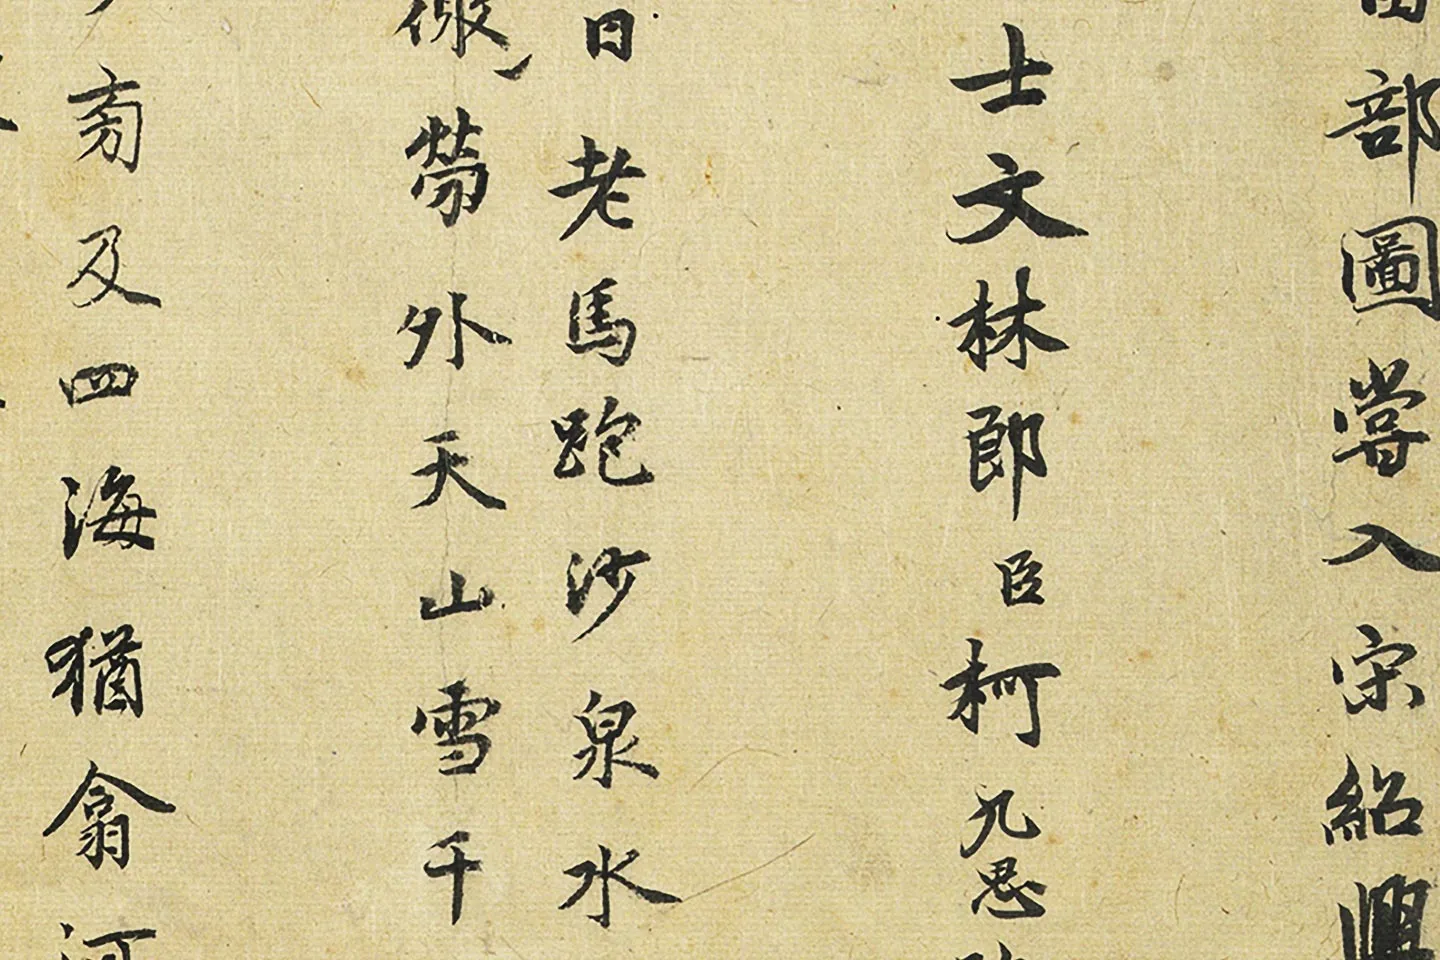 部圖嘗入宋紹興
士文林郎臣柯九思
日老馬跑沙泉水
勞外天山雪千
旁及四海猶翕河